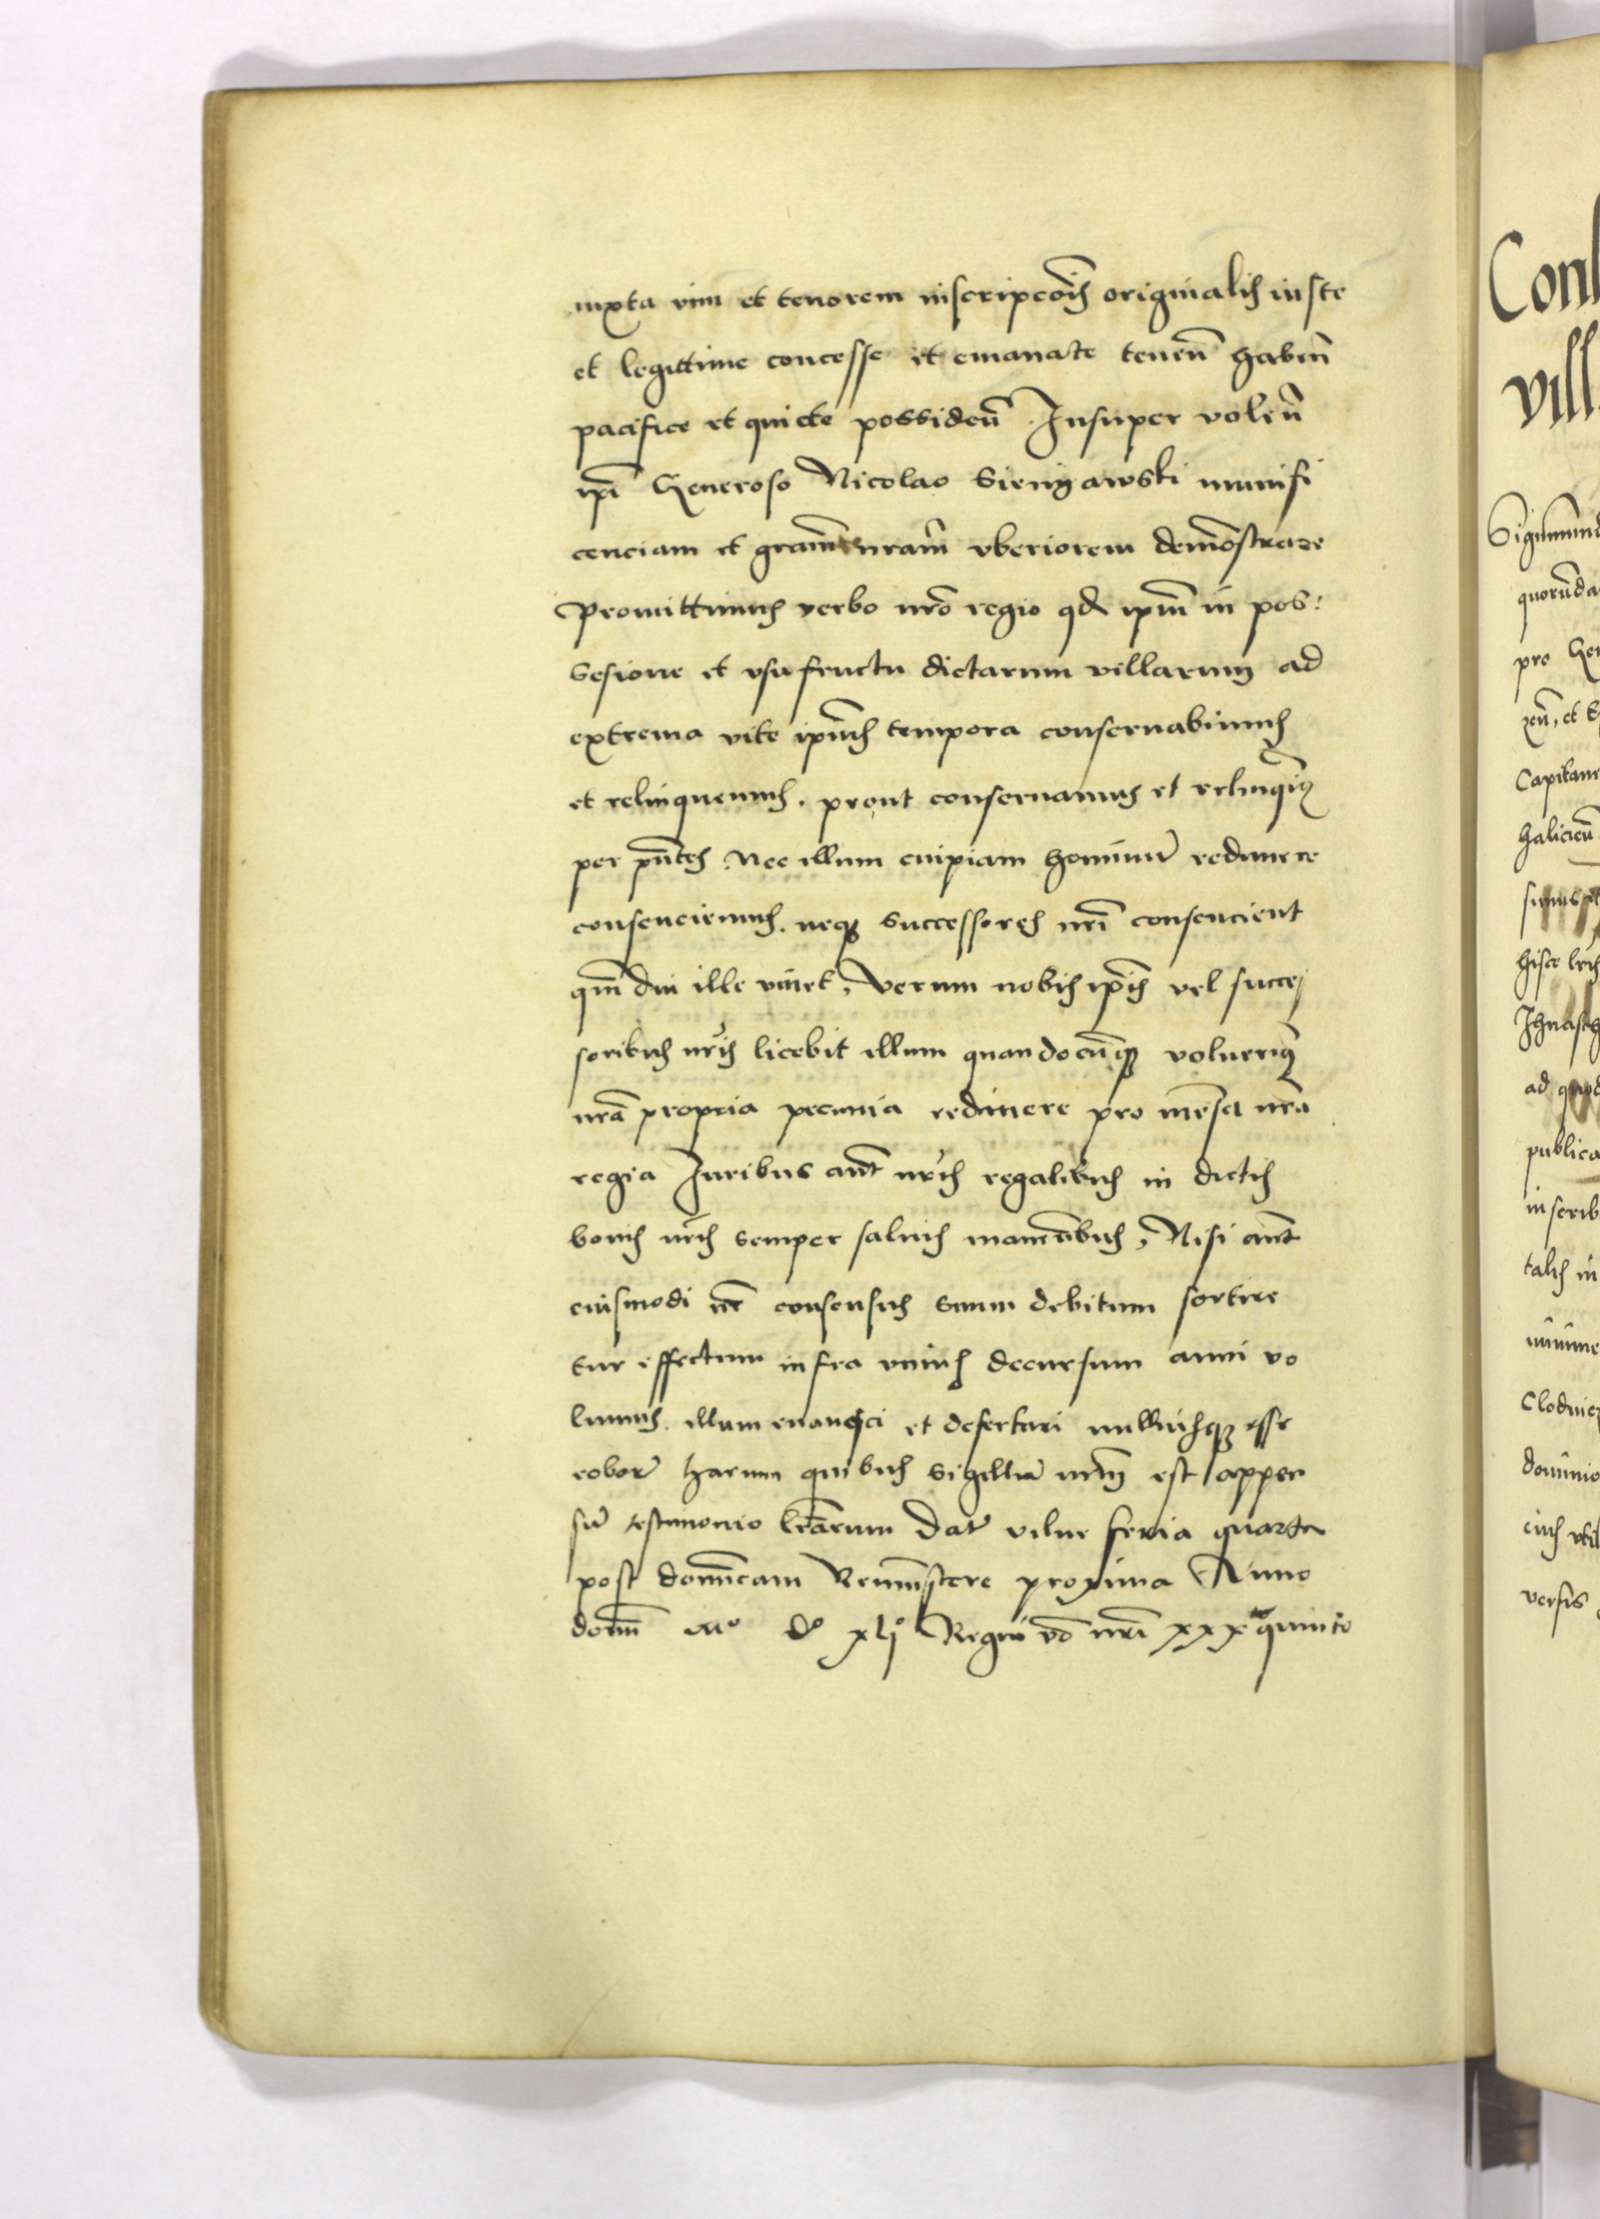 iuxta vim et tenorem inscripcõis originalis iuste
et legittime concesse et emanate teneñ habeñ
pacifice et quiete possideñ Insuper voleñ
ipi Generoso Nicolao Sienyawski munifi
cenciam et gram nram vberiorem demõstrare
Promittimus verbo nro regio qd ipm in pos:
sesione et vsufructu dictarum villarum ad
extrema vite ipius tempora conseruabimus
et relinquemus. prout conseruamus et relinqim9
per pñtes Nec illum cuipiam hominũ redimere
consenciemus. neq3 successores nri consencient
qm diu ille viuet, Verum nobis ipis vel succes
soribus nris licebit illum quandocũq3 voluerim9
nra propria pecunia redimere pro mensa nra
regia Iuribus aut nris regalibus in dictis
bonis nris semper saluis maneñbus, Nisi aut
eiusmodi nr consensus suum debitum sortire
tur effectum infra vnius decursum anni vo
lumus. illum enanesci et desertari nulliusq3 esse
robor Harum quibus sigillũ nrm est apper
sũ testimonio lrarum Dat vilne feria quarta
post domicam Reminiscere proxima Anno
domi Mº Dº xljº Regni vo nri xxx quinto
Sigismund
quorũda
pro Gen
Capitane
haliciеñ
publica
inscrib
talis in
Clodnicz
dominio
versis